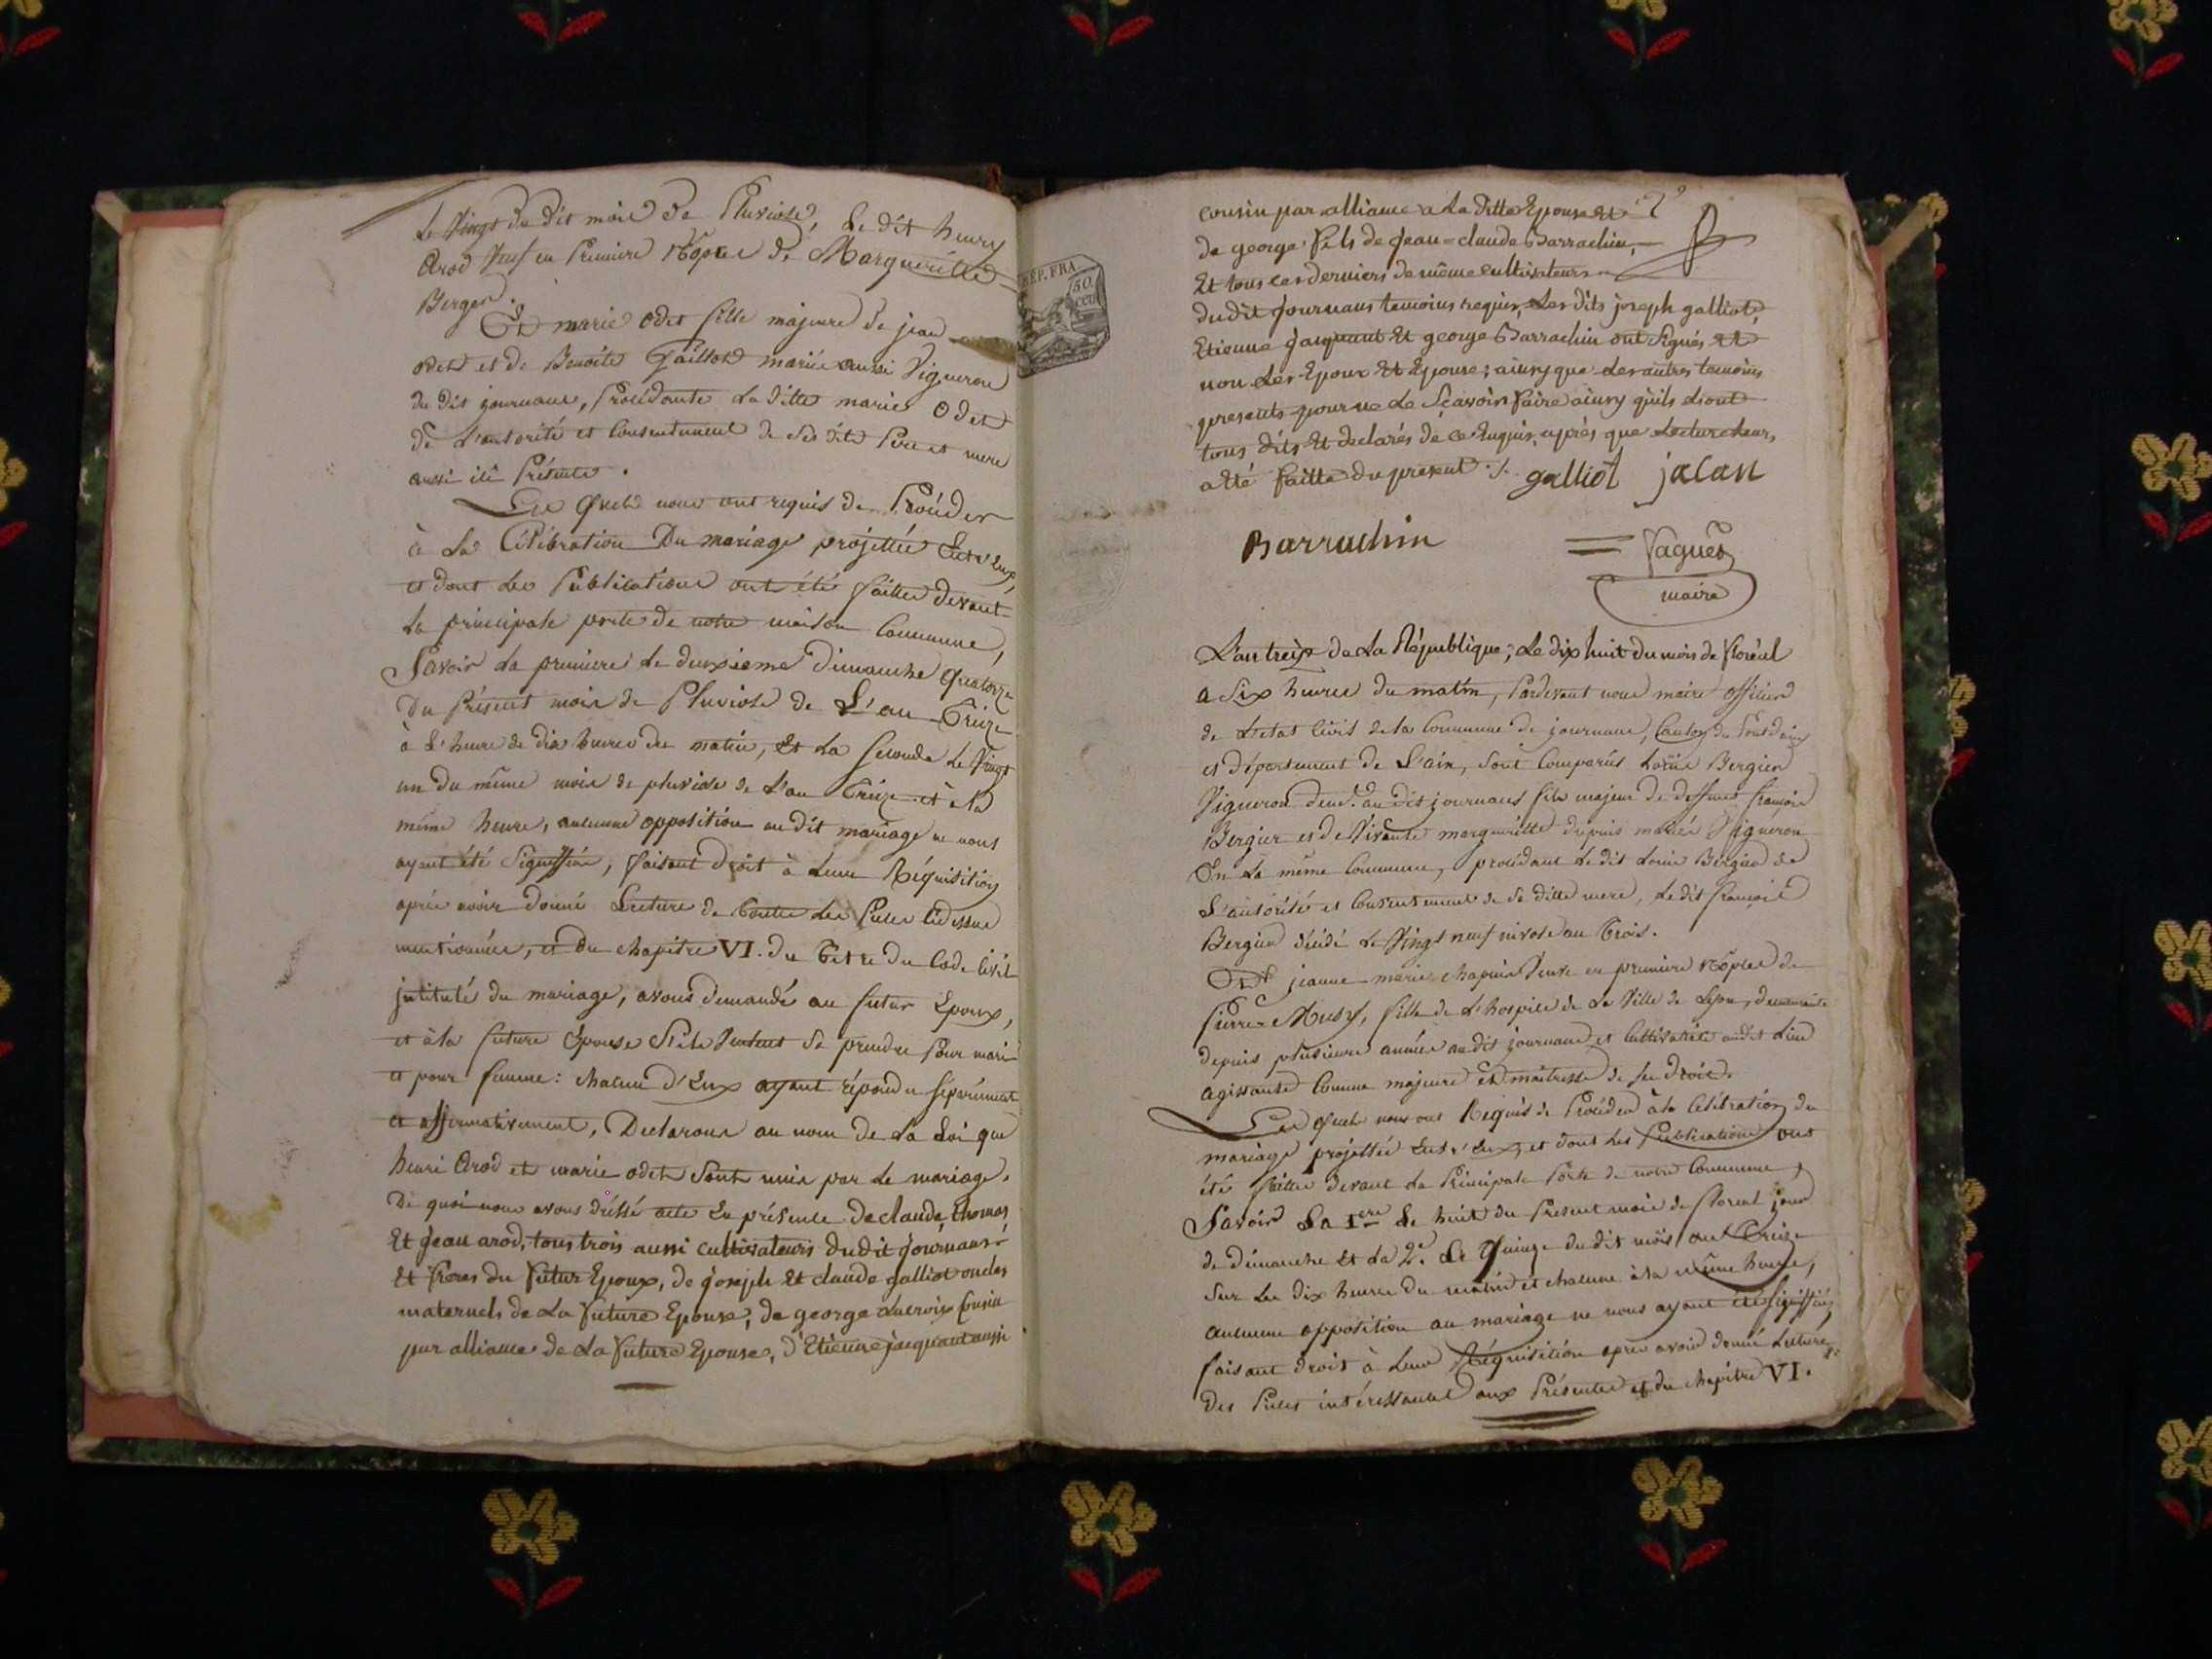 Le Vingt du dit mois de Pluviose, Le dit henry
Arod Veuf en Premiere Nôpces de Marguerittes
Berger.
Et marie Odet fille majeure de jean
odet et de Benoite Gaillot mariés aussi Vignerons
du dit journans, Procédante La ditte marie Odet
de L'autorité et Consentement de Ses dits Pere et mere
aussi ici Présents.
Les Quels nous ont requis de Procéder
à La Célébration Du mariage projettée Entr'eux,
et dont Les Publications ont été faittes devant
La principale porte de notre maison Commune,
Savoir La premiere Le deuxieme dimanche Quatorze
Du Présent mois de Pluviose de L'an Treize
à L'heure de dix heures du matin, Et La Seconde Le Vingt
un du même mois de pluviose de L'an Treize et à la
même heure, aucunne opposition au dit mariage ne nous
ayant été Signiffiée, faisant Droit à Leur Réquisition
après avoir donné Lecture de toutes Les Pieces Cidessus
mentionnées, et Du Chapitre VI. du Titre du Code Civil
jntitulé du mariage, avons demandé au futur Epoux,
et à la future Epouse S'ils Veulent Se prendre Pour mari
et pour femme: chacun d'Eux ayant répondu Séparément
et affirmativement, Declarons au nom de La Loi que
henri Arod et marie odet Sont unis par Le mariage.
De quoi nous avons dréssé acte En présence de claude, thomas
Et jean arod, tous trois aussi cultivateurs dudit Journans
Et freres du futur Epoux, de joseph Et claude galliot oncles
maternels de La future Epouse, de george Lacroix Cousin
par alliance de La future Epouse, d'Etienne jacquant aussi
RÉP. FRA.
50
cen
cousin par alliance a La ditte Epouse Et
de george fils de Jean=claude Barrachin,
Et tous ces derniers de même cultivateurs
dudit Journans temoins requis, Les dits joseph galliot,
Etienne Jacquant Et george Barrachin ont Signés Et
non Les Epoux Et Epouse; ainsy que Les autres temoins
presents pour ne Le Sçavoir faire ainsy qu'ils L'ont
tous dits Et declarés de ce Enquis, après que Lecture Leurs
a Eté faitte du present ./. galliot jacan
Barrachin Vaguès
maire
L'an treize de La République; Le dix huit du mois de floréal
a Six heures du matin, Pardevant nous maire officier
de L'état Civil de la Commune de journans, Canton du Pontdain
et département de L'ain, Sont Comparus Loüis Bergier
Vigneron dem.t au dit journans fils majeur de deffunt françois
Bergier et de Vivante margueritte Dupuis mariés Vignérons
En La même Commune, procédant Le dit Louis Bergier de
L'autorité et Consentement de Sa ditte mere, Le dit françois
Bergier décédé Le Vingt neuf nivose an Trois.
Et jeanne marie Chapuis Veuve en premiere Nôpces de
Pierre Musy, fille de L'hospice de La Ville de Lyon, demeurante
depuis plusieurs années au dit journans et Cultivatrice audit Lieu
agissante Comme majeure et maitresse de Ses Droits.
Les Quels nous ont Requis de Procéder à la Célébration du
mariage projettée Entr'Eux, et dont Les Publications ont
été faittes devant La Principale Porte de notre Commune,
Savoir La 1ere Le huit du Present mois de floreal jour
de Dimanche et La 2.e Le Quinze du dit mois an Treize
Sur Les dix heures du matin et chacune à la même heure,
aucunne opposition au mariage ne nous ayant été Signiffiée,
faisant droit à Leur Réquisition après avoir donné Lecture
des Pieces intéressantes aux Présentes et du chapitre VI.